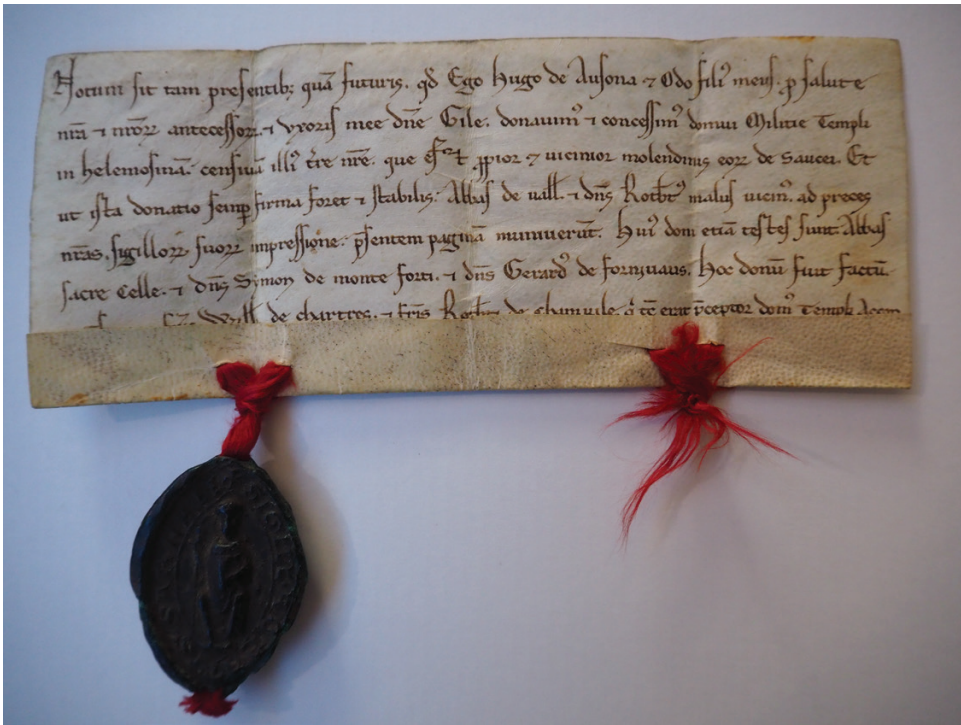 Notum sit tam presentib; quā futuris. qd Ego hugo de Ausona ⁊ Odo fili' meus. ꝑ salute
nr̄a ⁊ nr̄oꝝ antecessoꝝ. ⁊ vxoris mee dn̄e Gile. donauim' ⁊ concessim' domui Militie Templi
in helemosinā. censiuā illi' t̄re nr̄e. que est ꝓpior ⁊ uicinior molendinis eoꝝ de Saucei. Et
ut ista donatio semꝑ firma foret ⁊ stabilis. Abbas de uall. ⁊ dn̄s Rotbt' malus uicin'. ad preces
nr̄as. sigilloꝝ suoꝝ impressione. p̄sentem paginā muniuerūt. Hui' doni etiā testes sunt. Abbas
sacre Celle. ⁊ dn̄s Symon de monte forti. ⁊ dn̄s Gerard' de fornuaus. Hoc donū fuit factū.
Wyll de chartres. ⁊ fr̄is Rotbti de chamuile. q̄ tc̄ erat p̄ceptor dom' Templi